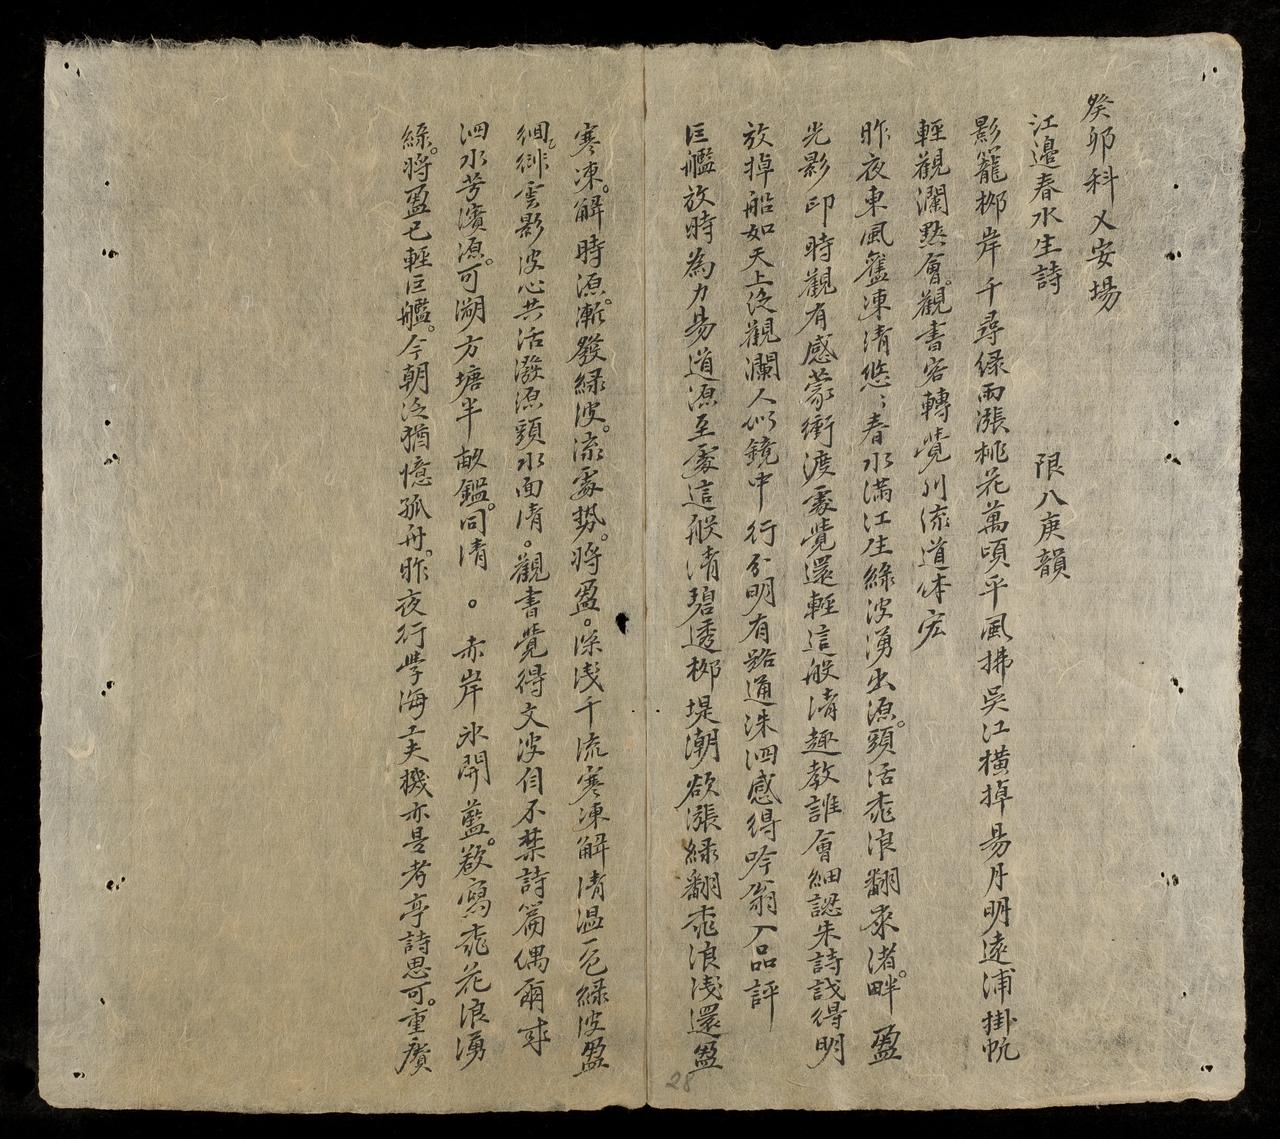 癸卯科乂安場
江邊春水生詩 限八庚韻
影籠柳岸千尋绿雨漲桃花萬頃平風拂吳江橫掉易月明遠浦掛帆
輕觀瀾黙會觀書客轉覺川流道体宏
昨夜東風舊凍清悠〻春水滿江生綠波湧出源頭活桃浪翻來渚畔盈
光影印時觀有感蒙衝渡處覺還輕這般清趣教誰會細認朱詩說得明
放掉船如天上泛觀瀾人似鏡中行分明有路通洙泗感得吟翁入品評
巨艦放時為力易道源至處這般清碧透柳堤潮欲漲綠翻桃浪淺還盈
寒凍解時源漸發綠波流處勢將盈深淺千流寒凍解清温一色綠波盈
徊徘雲影波心共活潑源頭水面清觀書覺得文波自不禁詩篇偶爾成
泗水芳濱源可溯方塘半畝鑑同清 赤岸氷開藍欲寫桃花浪湧
綠將盈已輕巨艦今朝泛猶憶孤舟昨夜行學海工夫機亦是考亭詩思可重賡
28